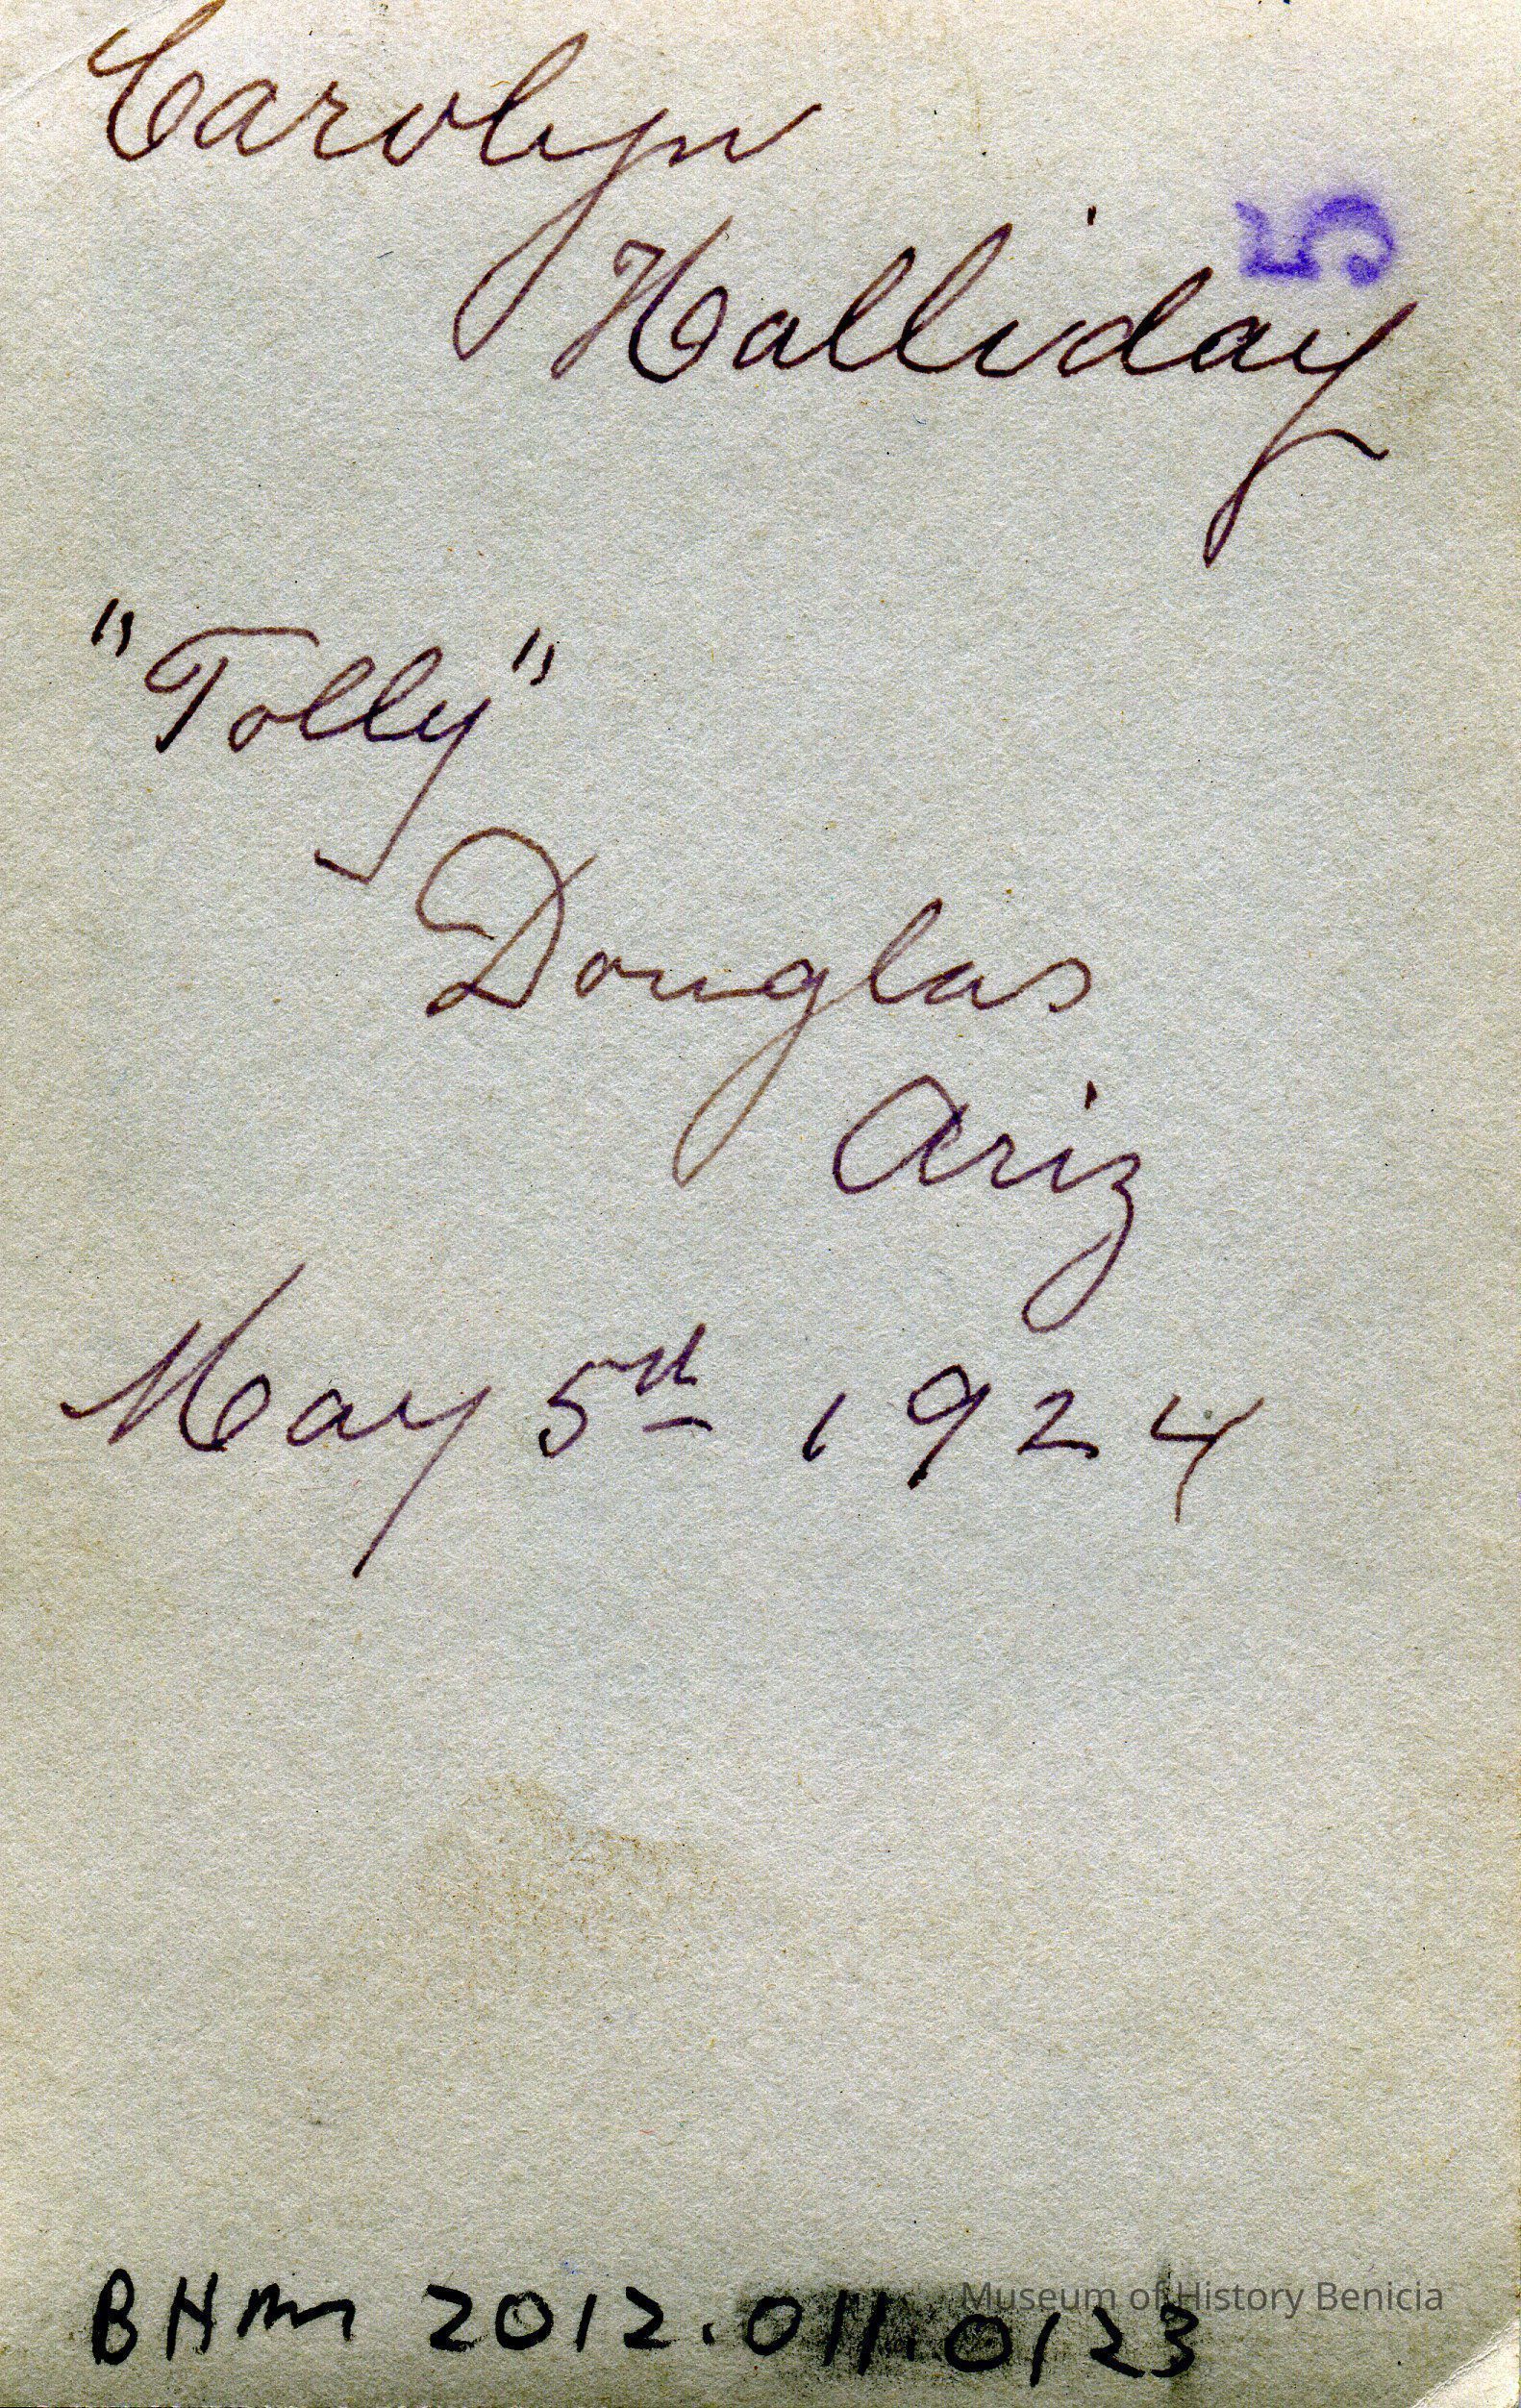 Carolyn
5
Halliday
"Tolly"
Douglas
Ariz
May 5th 1924
BHM 2012.011.0123
Museum of History Benicia